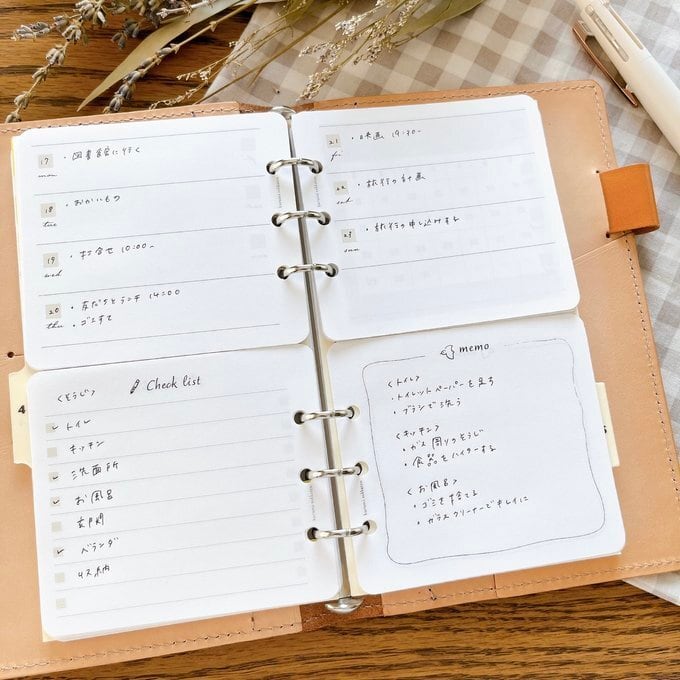 17
mon
・図書館に行く
18
tue
・おかいもの
19
wed
・打合せ 10:00~
20
thu
・友だちとランチ 14:00
・ゴミすて
21
fri
・映画 19:30~
22
sat
・旅行の計画
23
sun
・旅行の申し込みする
Check list
<そうじ>
トイレ
キッチン
洗面所
お風呂
玄関
ベランダ
収納
memo
<トイレ>
・トイレットペーパーを足す
・ブラシで洗う
<キッチン>
・ガス周りのそうじ
・食器をハイターする
<お風呂>
・ゴミを捨てる
・ガラスクリーナーでキレイに
4